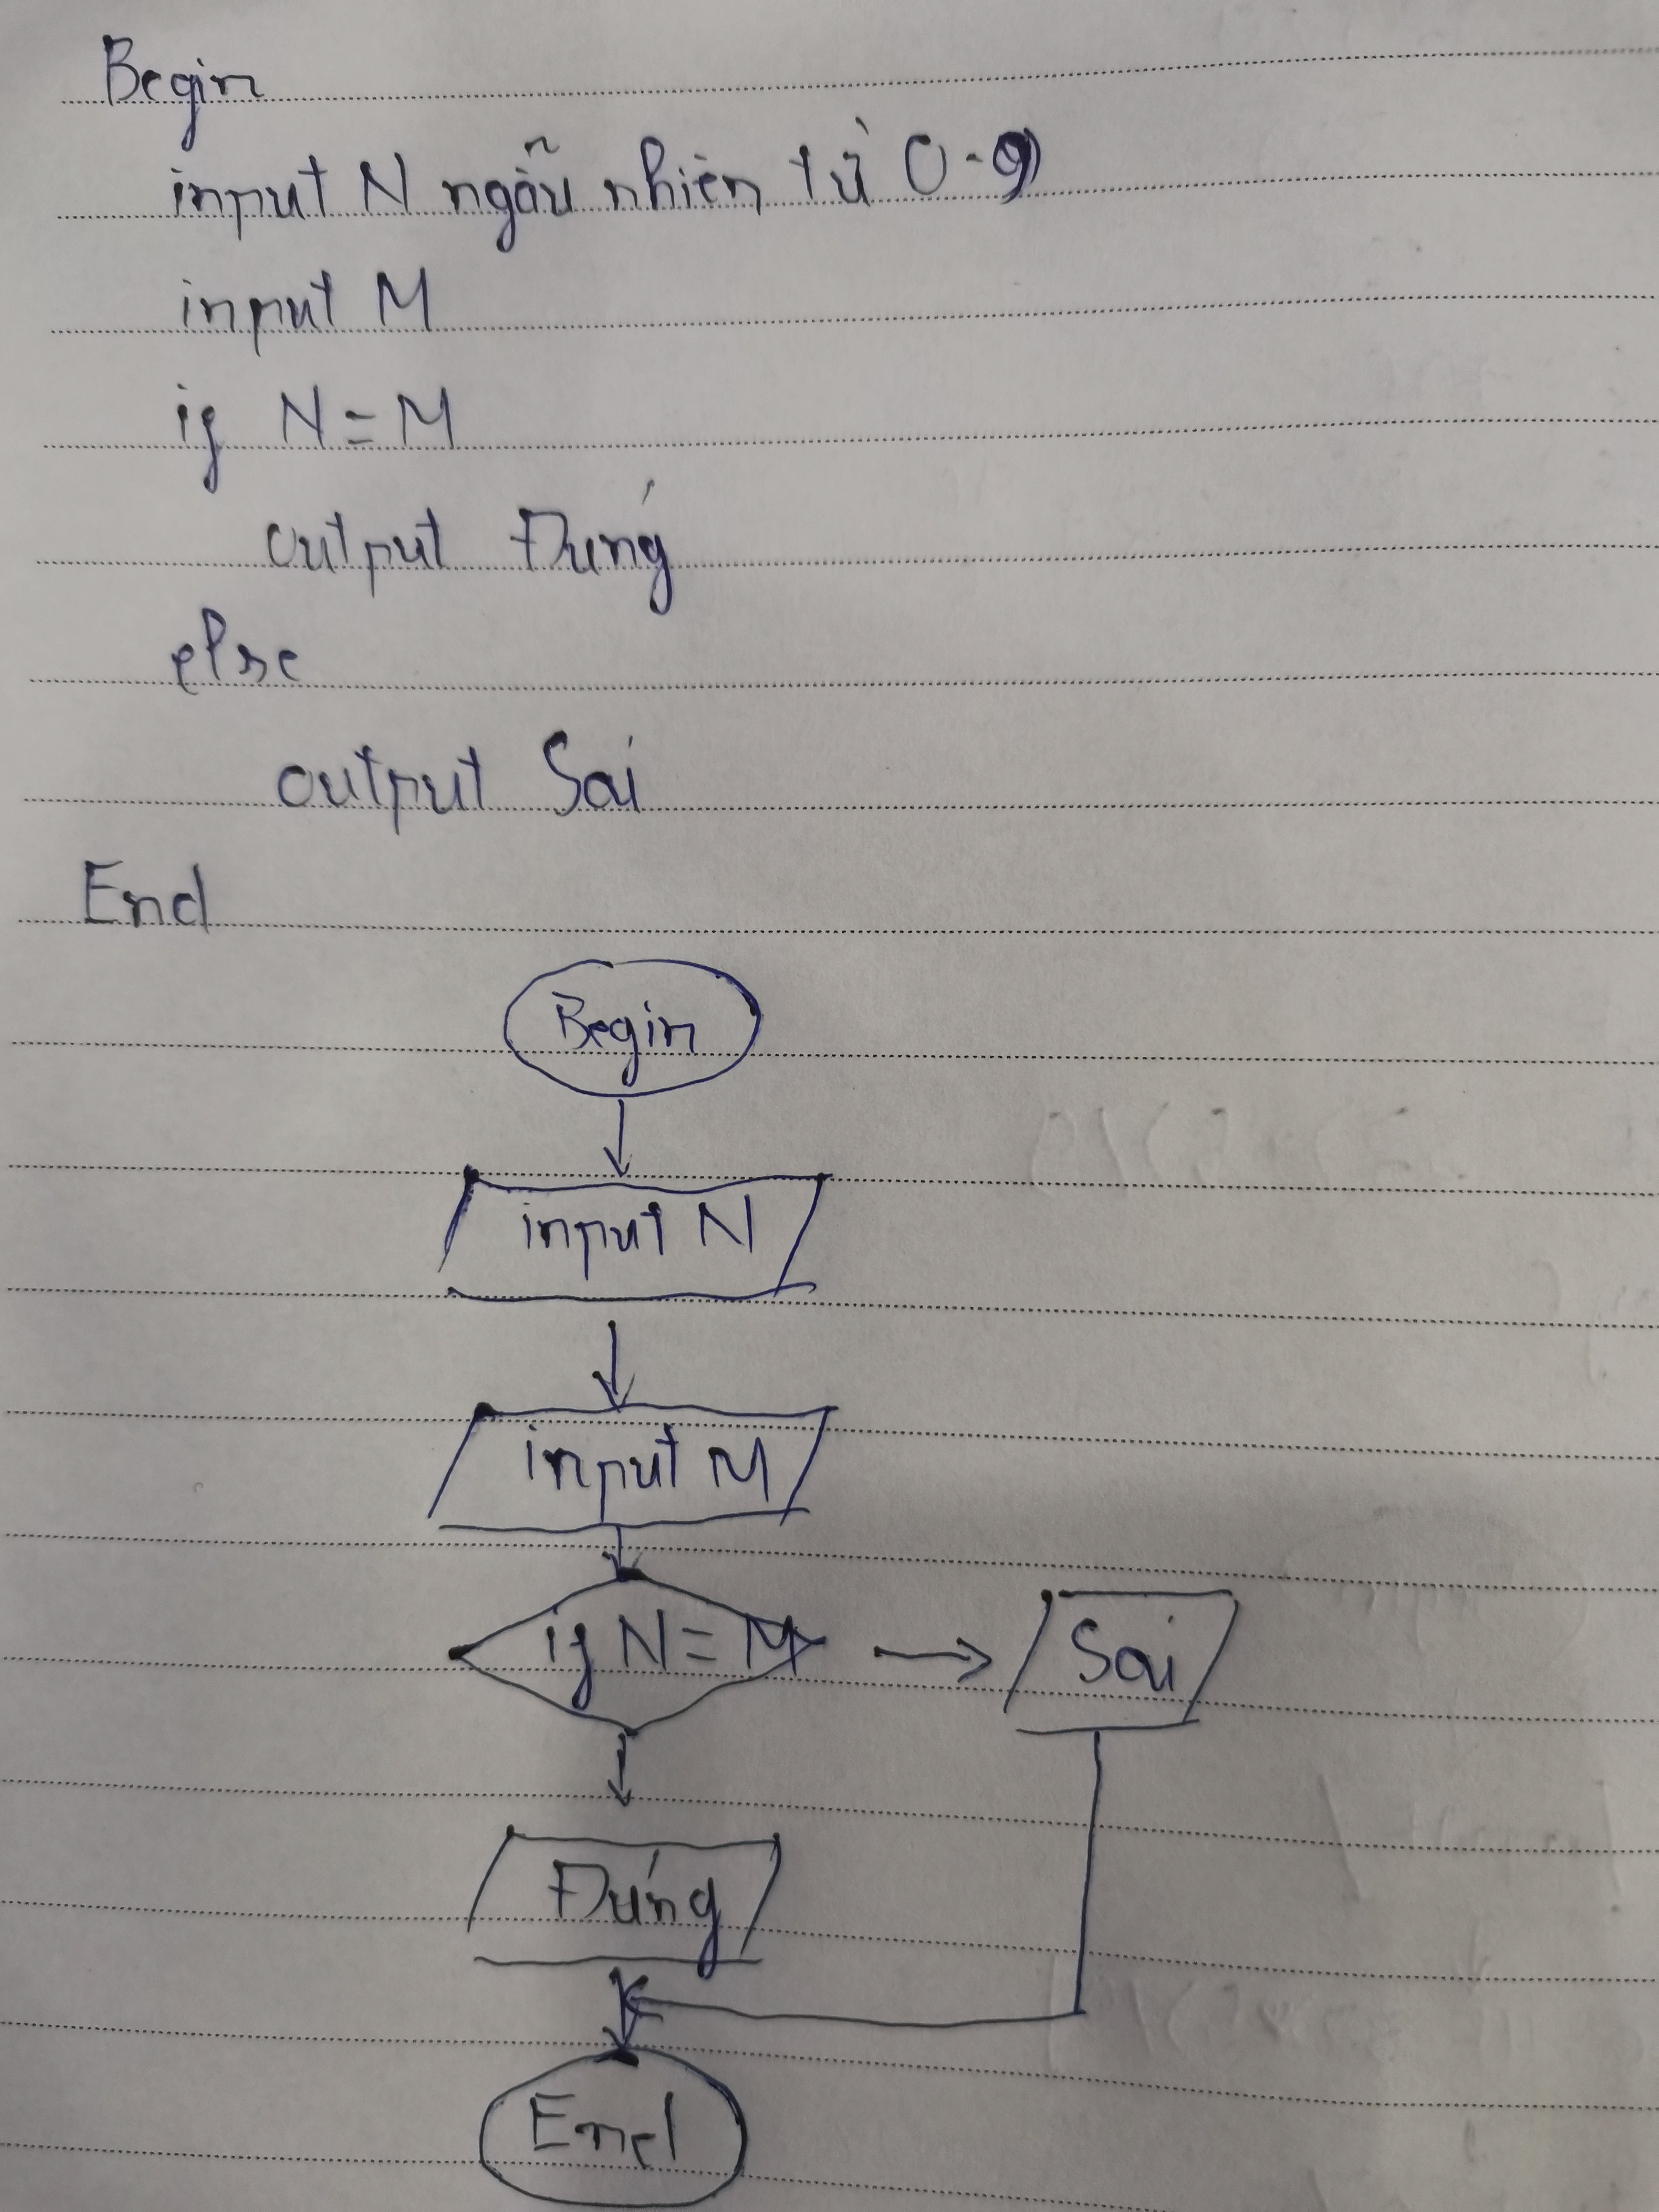 Begin
input N ngẫu nhiên từ 0-9
input M
if N = M
output Đúng
else
output Sai
End
Begin
input N
input M
if N = M
Sai
Đúng
End